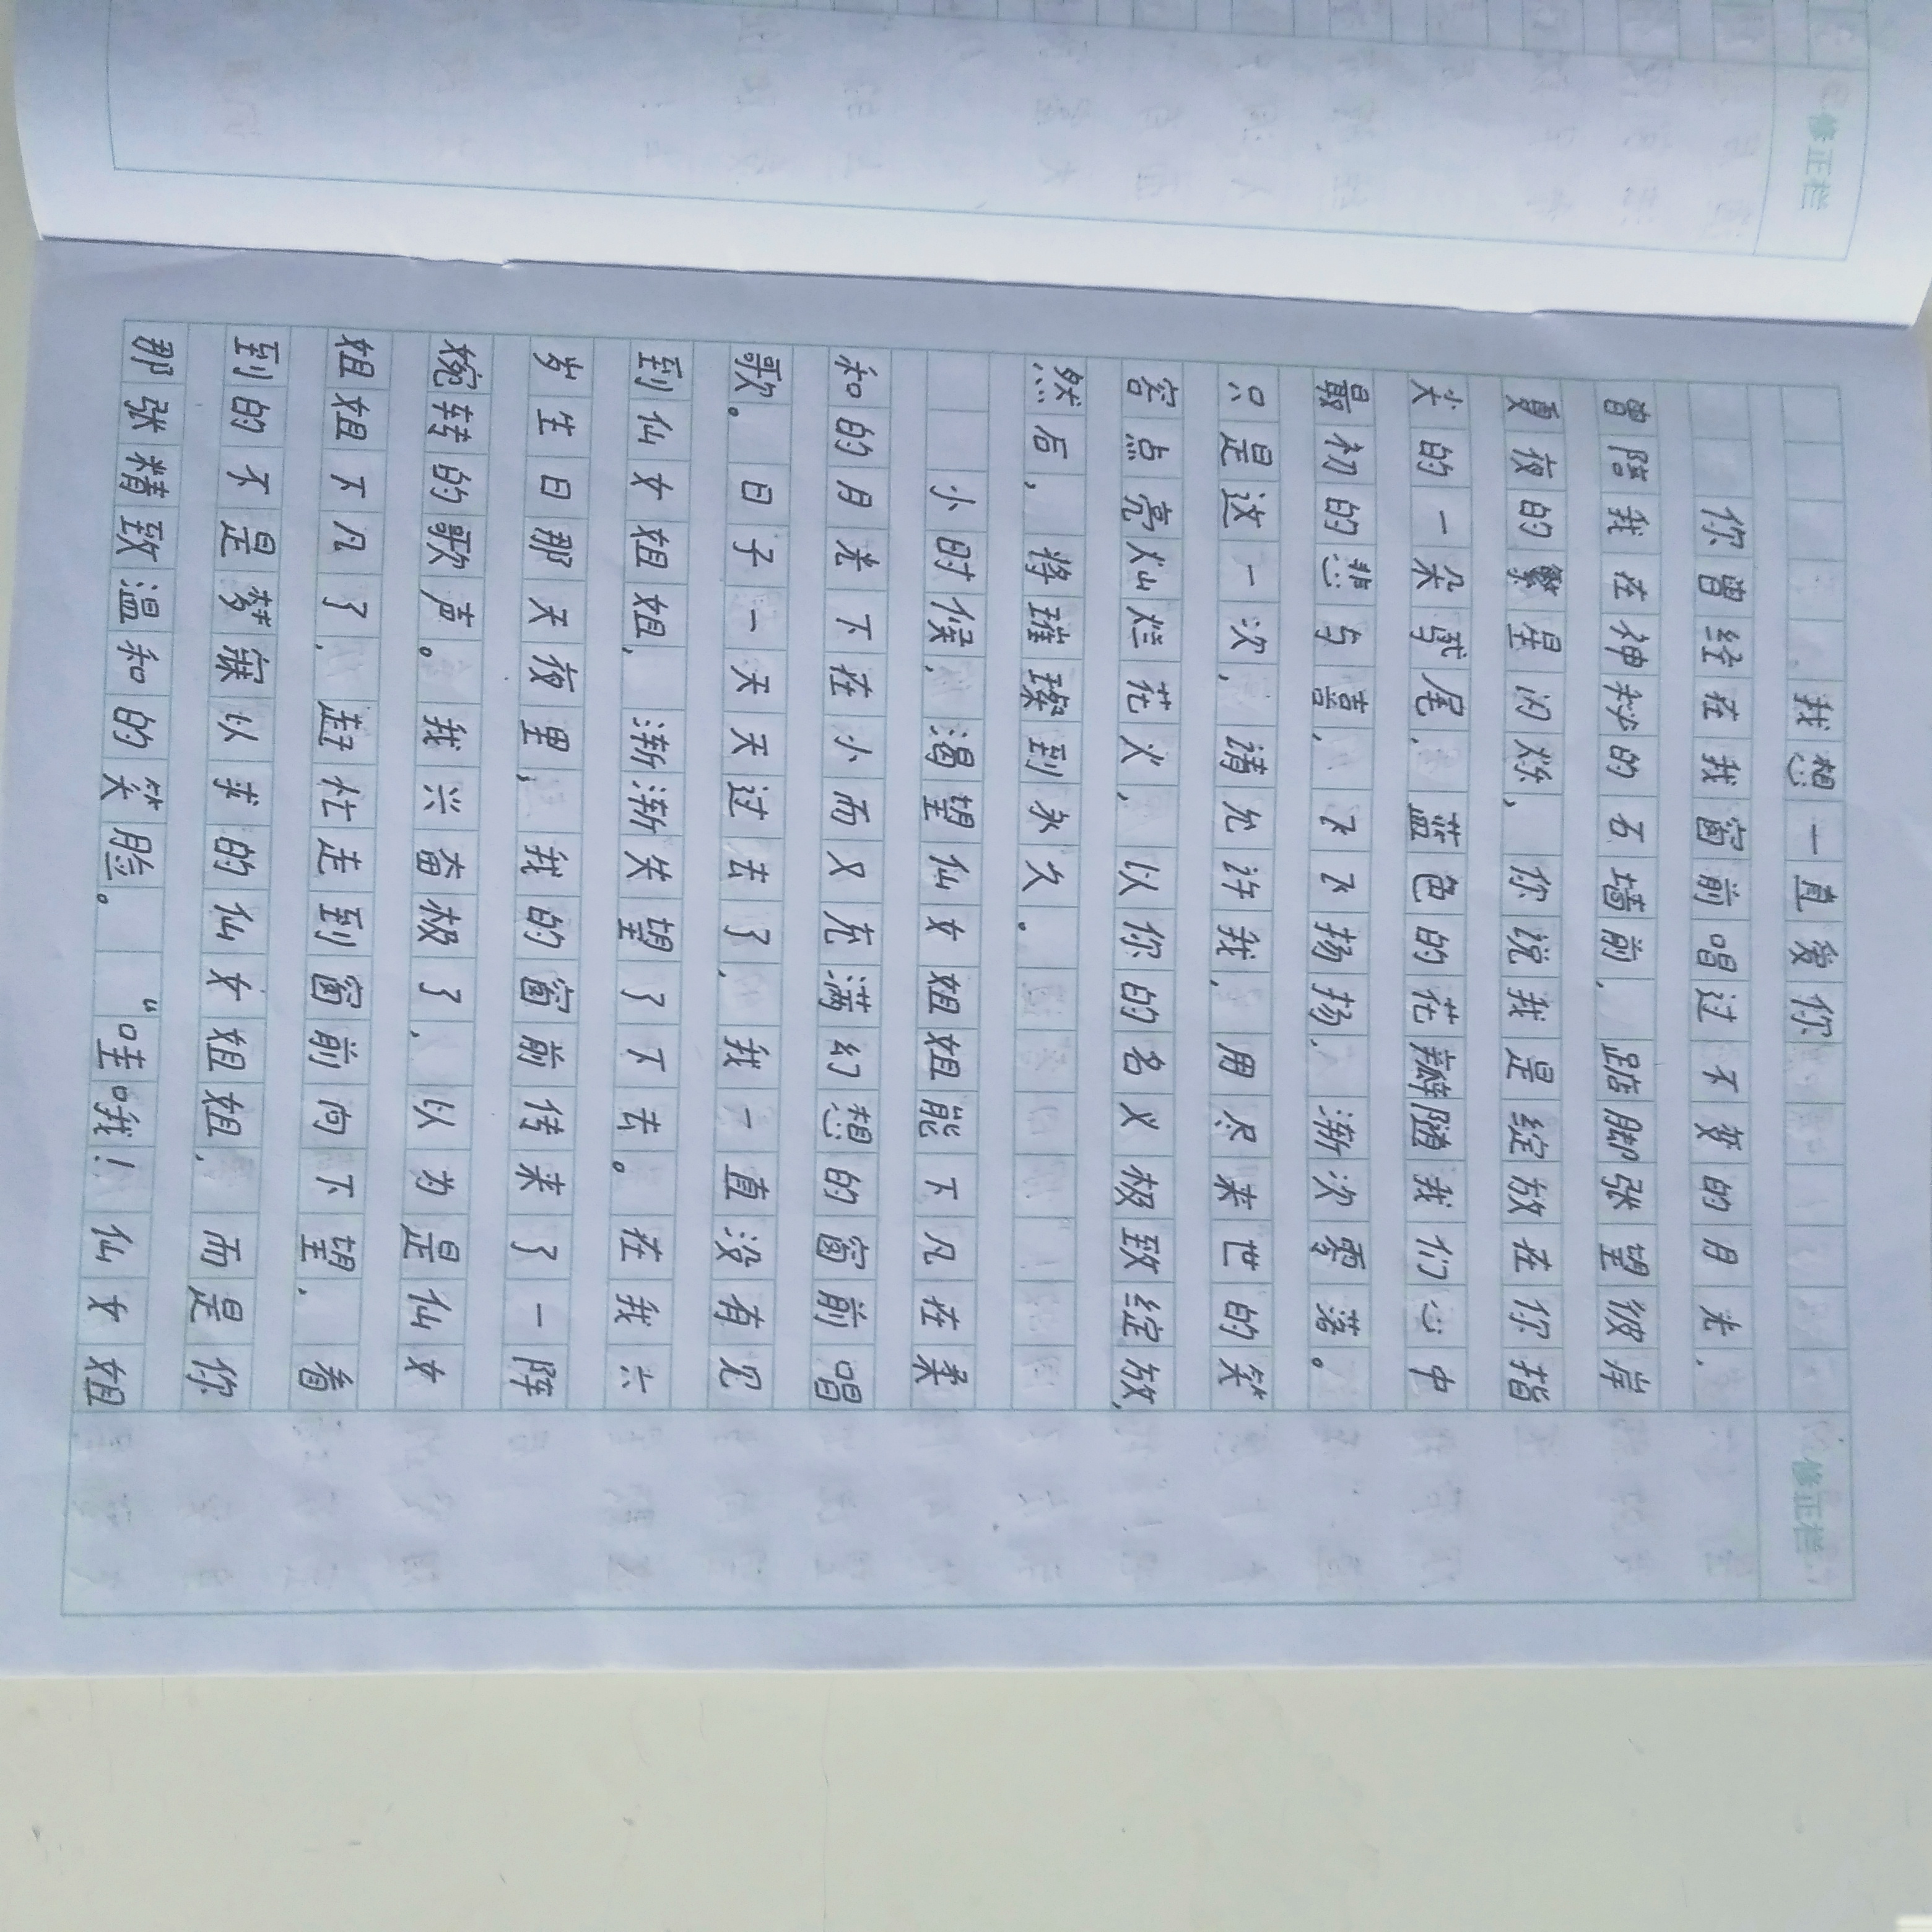 我想一直爱你
你曾经在我窗前唱过不变的月光，
曾陪我在神秘的石墙前，踮脚张望彼岸
夏夜的繁星闪烁，你说我是绽放在你指
尖的一朵鸢尾，蓝色的花瓣随我们心中
最初的悲与喜，飞飞扬扬，渐次零落。
只是这一次，请允许我，用尽来世的笑
容点亮灿烂花火，以你的名义极致绽放，
然后，将璀璨到永久。
小时候，渴望仙女姐姐能下凡在柔
和的月光下在小而又充满幻想的窗前唱
歌。日子一天天过去了，我一直没有见
到仙女姐姐，渐渐失望了下去。在我六
岁生日那天夜里，我的窗前传来了一阵
婉转的歌声。我兴奋极了，以为是仙女
姐姐下凡了，赶忙走到窗前向下望，看
到的不是梦寐以求的仙女姐姐，而是你
那张精致温和的笑脸。“哇哦！仙女姐
修正栏
修正栏